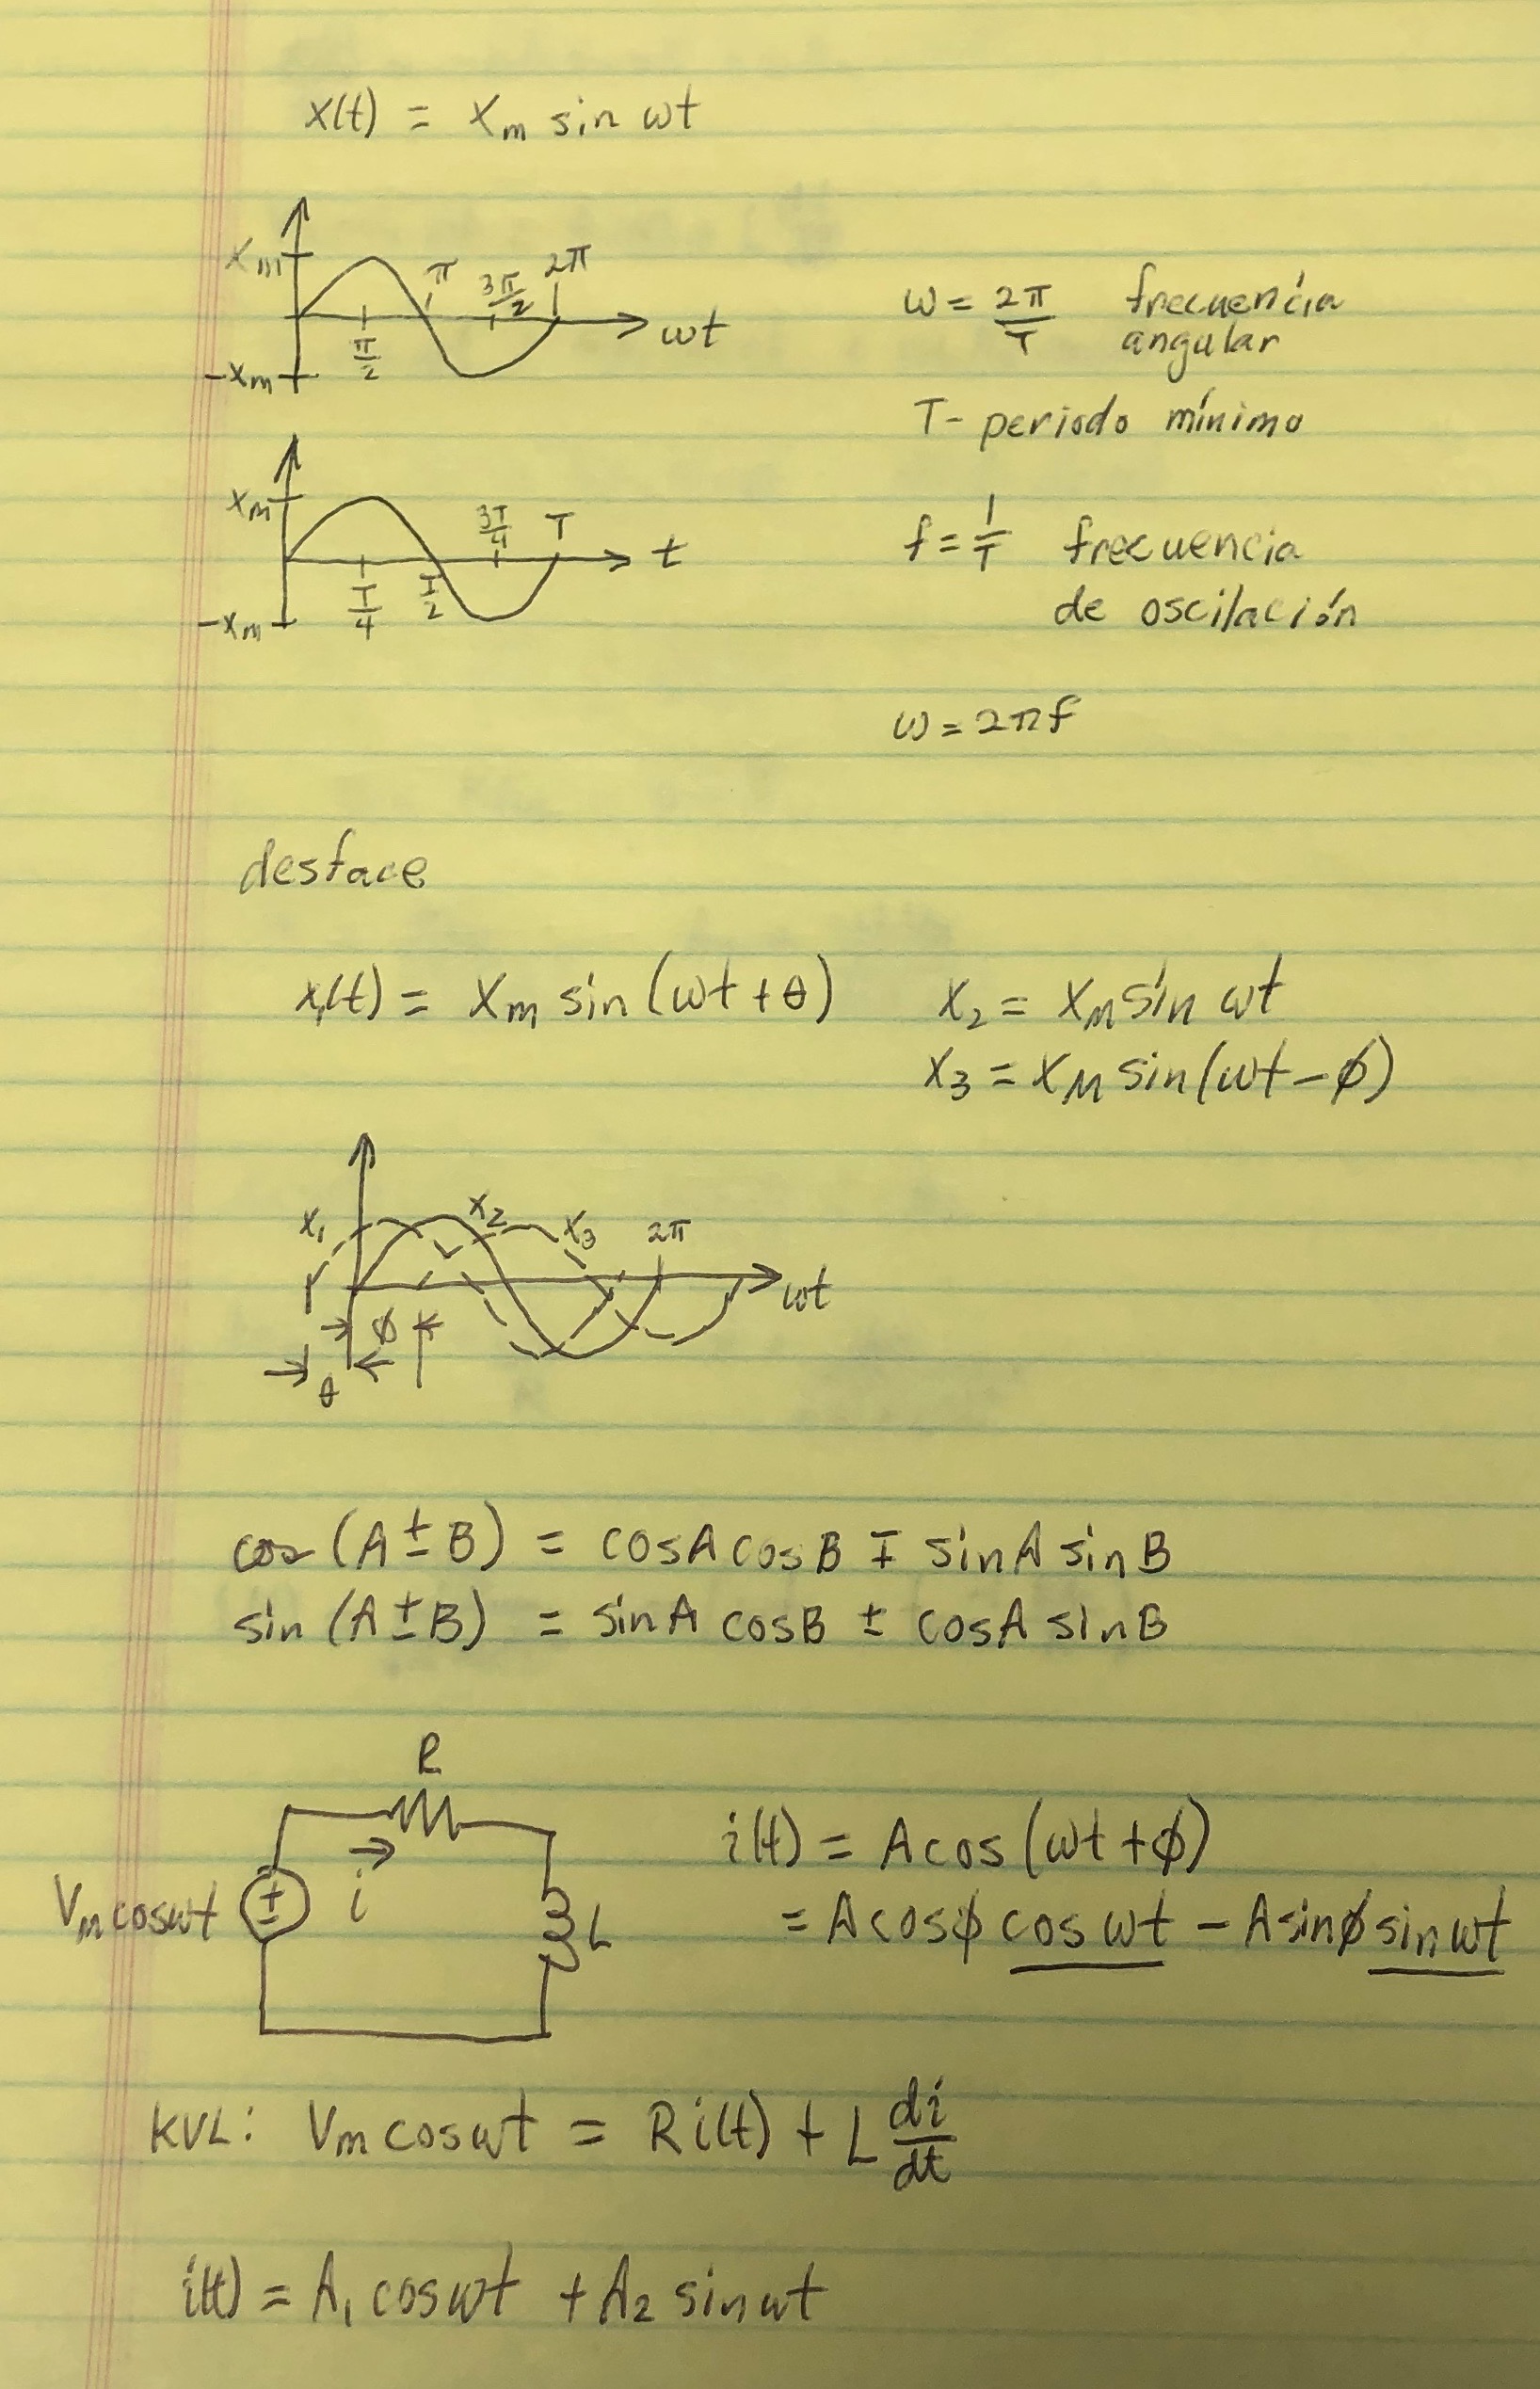 x(t) = Xm sin ωt
Xm
π
3π/2
2π
π/2
ωt
-Xm
ω = 2π/T frecuencía
angular
T- periodo mínimo
Xm
3T/4
T
t
T/4
T/2
-Xm
f = 1/T frecuencia
de oscilación
ω = 2πf
desface
x₁(t) = Xm sin (ωt + θ)
X₂ = XM sin ωt
X₃ = XM sin(ωt - ϕ)
X₁
X₂
X₃
2π
ωt
ϕ
θ
cos (A ± B) = cosA cosB ∓ sinA sinB
sin (A ± B) = sinA cosB ± cosA sinB
R
Vm cosωt
±
i
L
i(t) = A cos (ωt + ϕ)
= A cosϕ cos ωt - A sinϕ sin ωt
KVL: Vm cosωt = R i(t) + L di/dt
i(t) = A₁ cosωt + A₂ sinωt